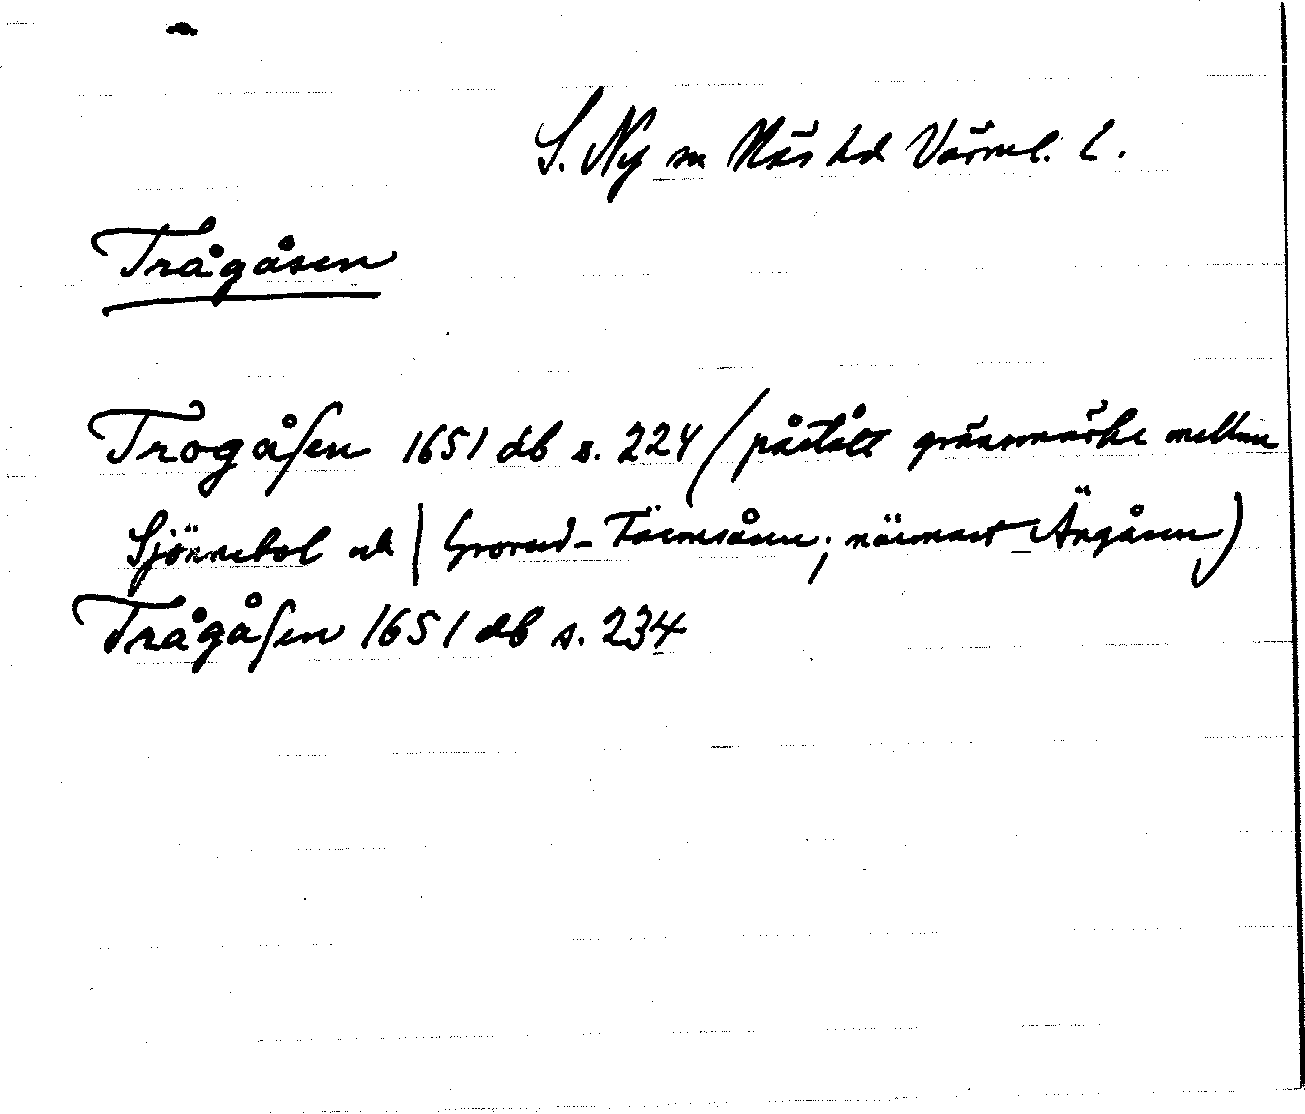 S. Ny sn Näs hd Värml. l.
Trågåsen
Trogåſen 1651 db s. 224 (påstått gränsmärke mellan
Sjönnebol och | Grorud-Tärnsåsen; närmast Ängåsen)
Trågåſen 1651 db s. 234